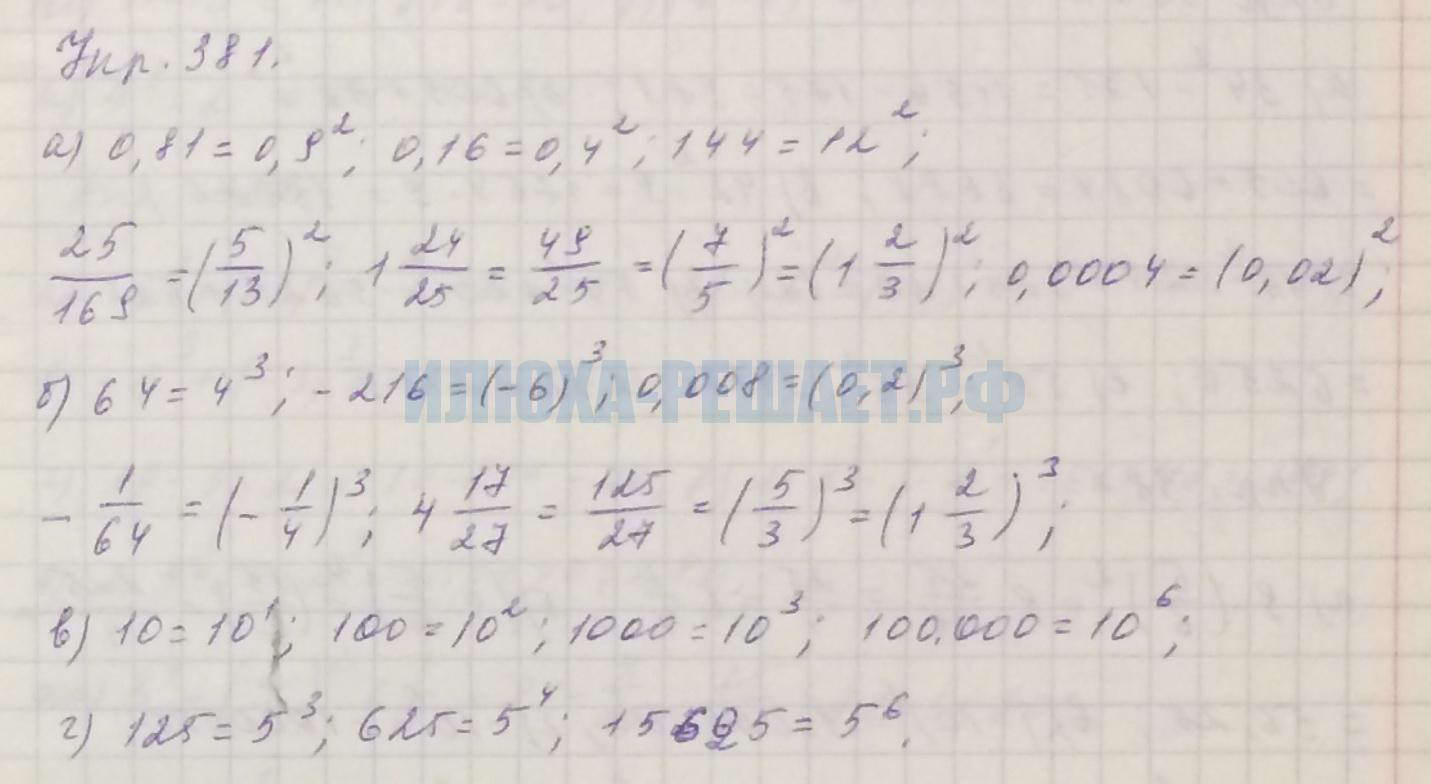 Упр. 381.
а) 0,81 = 0,9²; 0,16 = 0,4²; 144 = 12²;
25/169 = (5/13)²; 1 24/25 = 49/25 = (7/5)² = (1 2/3)²; 0,0004 = (0,02)²;
б) 64 = 4³; -216 = (-6)³; 0,008 = (0,2)³;
ИЛЮХА-РЕШАЕТ.РФ
- 1/64 = (- 1/4)³; 4 17/27 = 125/27 = (5/3)³ = (1 2/3)³;
в) 10 = 10¹; 100 = 10²; 1000 = 10³; 100.000 = 10⁶;
г) 125 = 5³; 625 = 5⁴; 15625 = 5⁶.